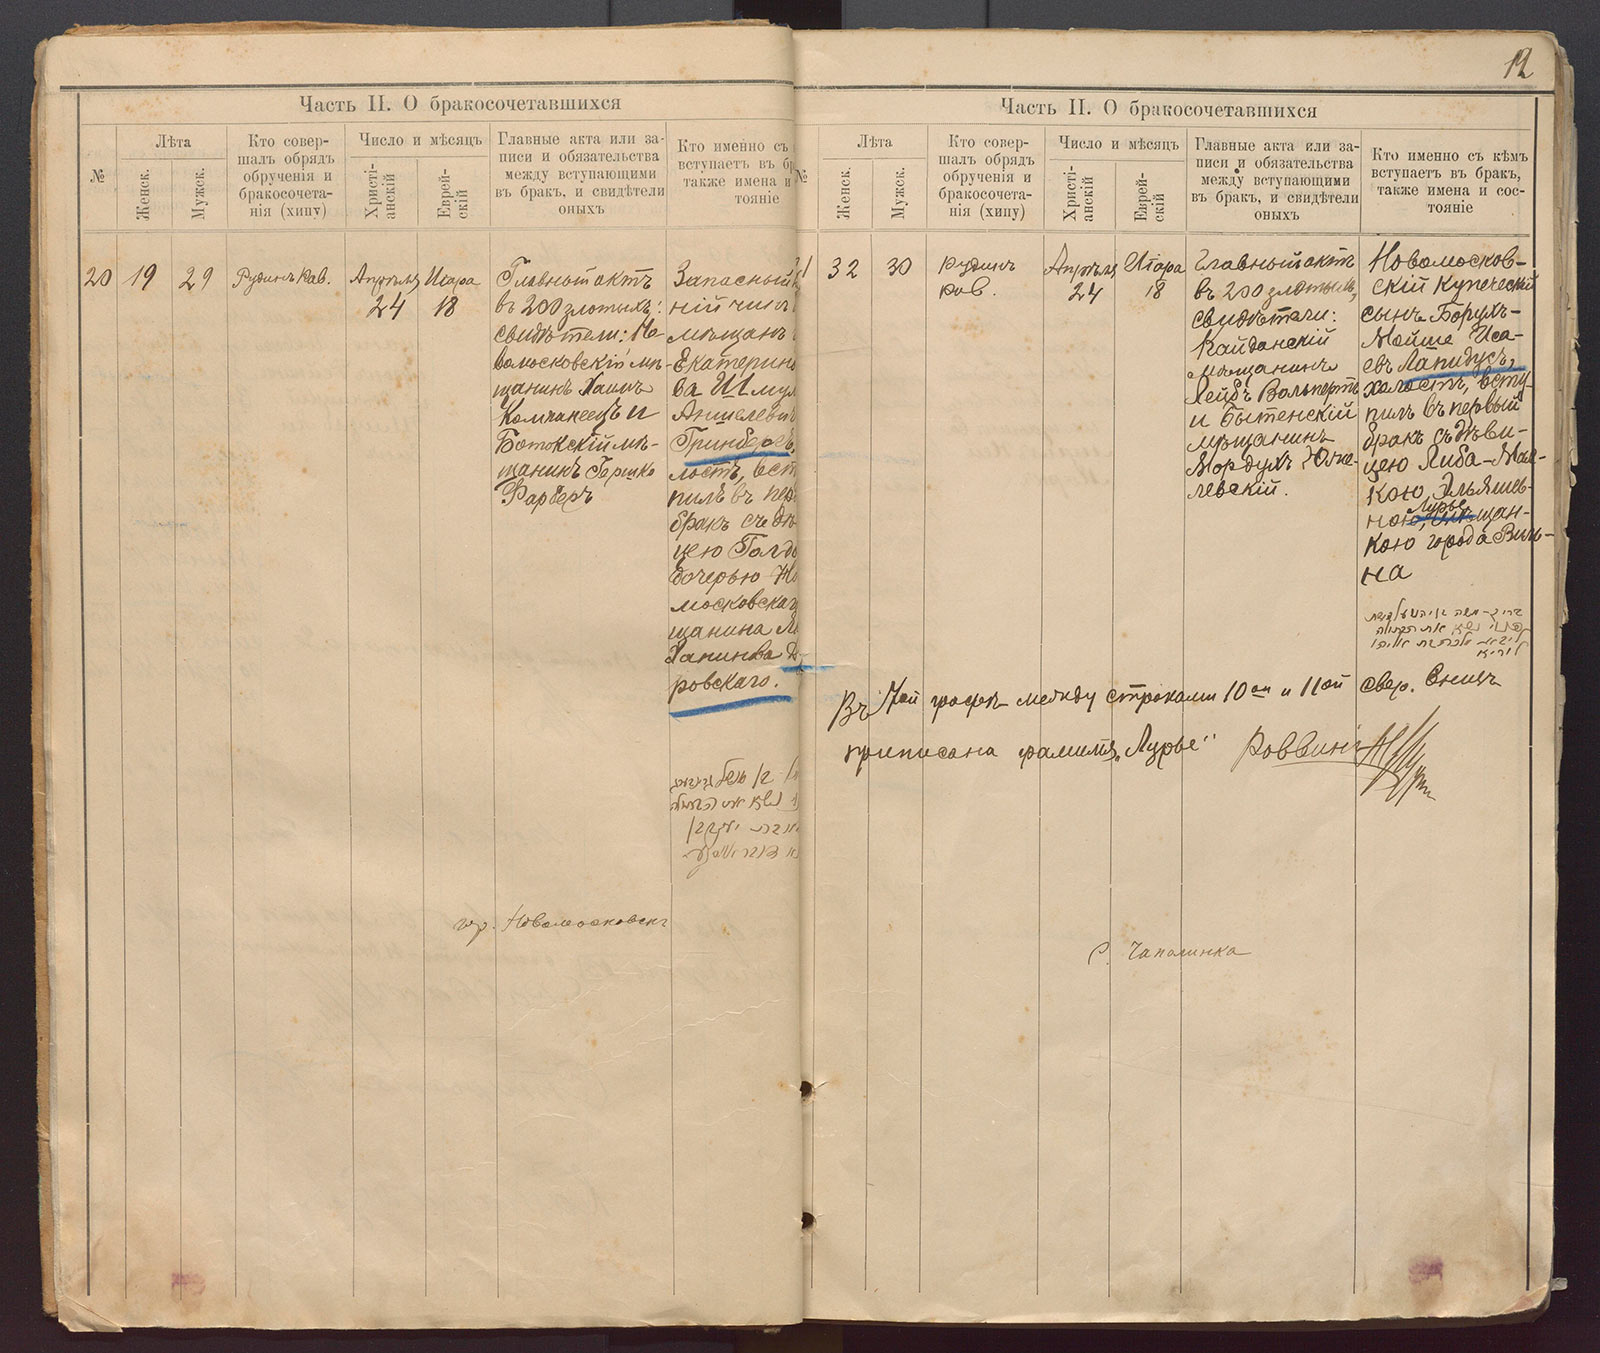 Часть II. О бракосочетавшихся
№
Лѣта
Женск.
Мужск.
Кто совер-
шалъ обрядъ
обрученія и
бракосочета-
нія (хипу)
Число и мѣсяцъ
Христі-
анскій
Еврей-
скій
Главные акта или за-
писи и обязательства
между вступающими
въ бракъ, и свидѣтели
оныхъ
Кто именно съ
вступаетъ въ бр
также имена и
тояніе
20
19
29
Рудинъ Рав.
Апрѣля
24
Иіара
18
Главный актъ
въ 200 злотыхъ:
свидѣтели: Но-
вомосковскій мѣ-
щанинъ Хаимъ
Компанеецъ и
мѣ-
щанинъ Гершко
Фарберъ
Запасный
ній чинъ
мѣщанъ
Екатерино
ва Шмул
Аншелевичъ
Гринбергъ,
лостъ, вст
пилъ въ пер
бракъ съ дѣ
цею Голдо
дочерью Но
московскаго
щанина
Ханинва
ровскаго.
гор. Новомосковскъ
12
Часть II. О бракосочетавшихся
№
Лѣта
Женск.
Мужск.
Кто совер-
шалъ обрядъ
обрученія и
бракосочета-
нія (хипу)
Число и мѣсяцъ
Христі-
анскій
Еврей-
скій
Главные акта или за-
писи и обязательства
между вступающими
въ бракъ, и свидѣтели
оныхъ
Кто именно съ кѣмъ
вступаетъ въ бракъ,
также имена и сос-
тояніе
32
30
Рудинъ
Рав.
Апрѣля
24
Иіара
18
Главный актъ
въ 200 злотыхъ,
свидѣтели:
Кайданскій
мѣщанинъ
Лейбъ Вольпертъ
и Бытенскій
мѣщанинъ
Мордухъ Юже-
левскій.
Новомосков-
скій купеческій
сынъ Борухъ-
Мойше Иса-
евъ Лапидусъ,
холостъ, всту-
пилъ въ первый
бракъ съ дѣви-
цею Либа-Мал-
кою Эльяшев-
Лурье
ною, мѣщан-
кою города Виль-
на
Въ 7ой графѣ между строками 10ой и 11ой
приписана фамилія „Лурье" Раввинъ
с. Чапалинка